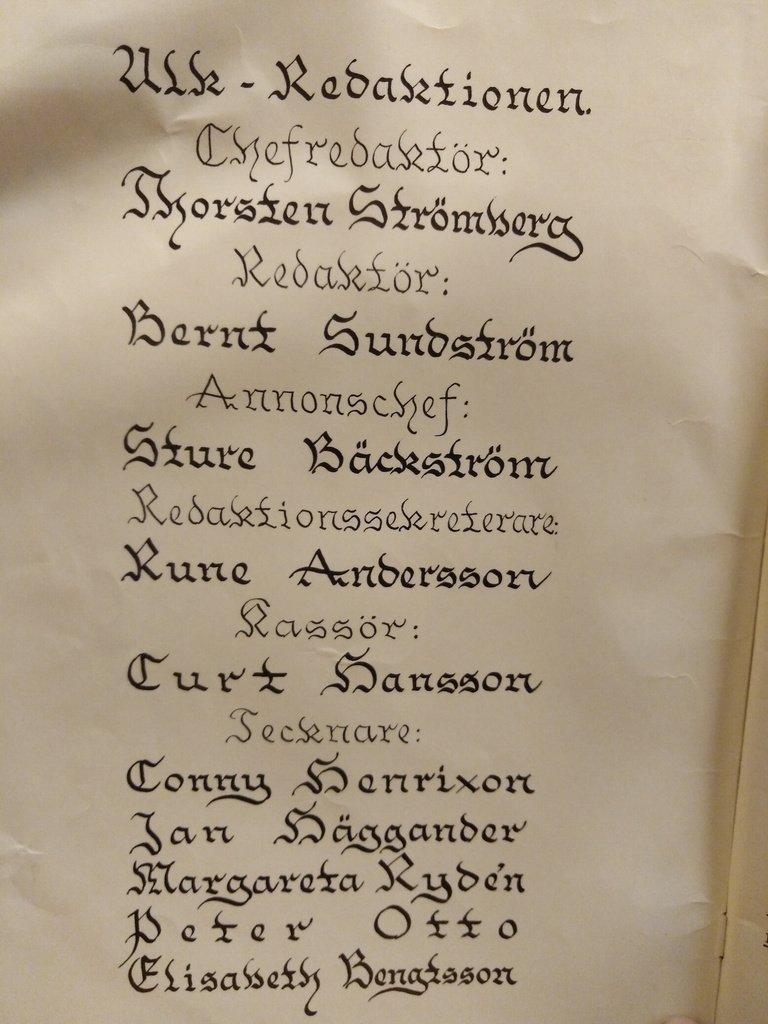 Ulk - Redaktionen.
Chefredaktör:
Thorsten Strömberg
Redaktör:
Bernt Sundström
Annonschef:
Sture Bäckström
Redaktionssekreterare:
Rune Andersson
Kassör:
Curt Hansson
Tecknare:
Conny Henrixon
Jan Häggander
Margareta Rydén
Peter Otto
Elisabeth Bengtsson